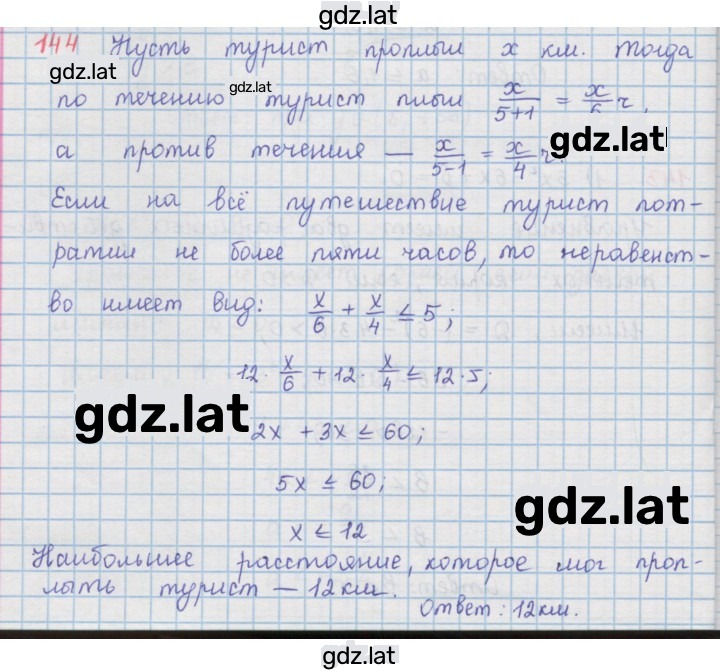 gdz.lat
144 Пусть турист проплыл x км. Тогда
gdz.lat
gdz.lat
по течению турист плыл x/(5+1) = x/6 ч,
gdz.lat
а против течения — x/(5-1) = x/4 ч.
Если на всё путешествие турист пот-
ратил не более пяти часов, то неравенст-
во имеет вид: x/6 + x/4 ≤ 5;
12 · x/6 + 12 · x/4 ≤ 12 · 5;
gdz.lat
2x + 3x ≤ 60;
5x ≤ 60;
gdz.lat
x ≤ 12
Наибольшее расстояние, которое мог проп-
лыть турист — 12 км.
Ответ: 12 км.
gdz.lat